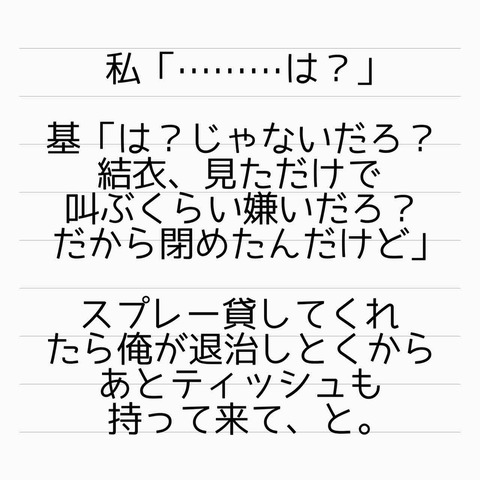 私「………は？」
基「は？じゃないだろ？
結衣、見ただけで
叫ぶくらい嫌いだろ？
だから閉めたんだけど」
スプレー貸してくれ
たら俺が退治しとくから
あとティッシュも
持って来て、と。